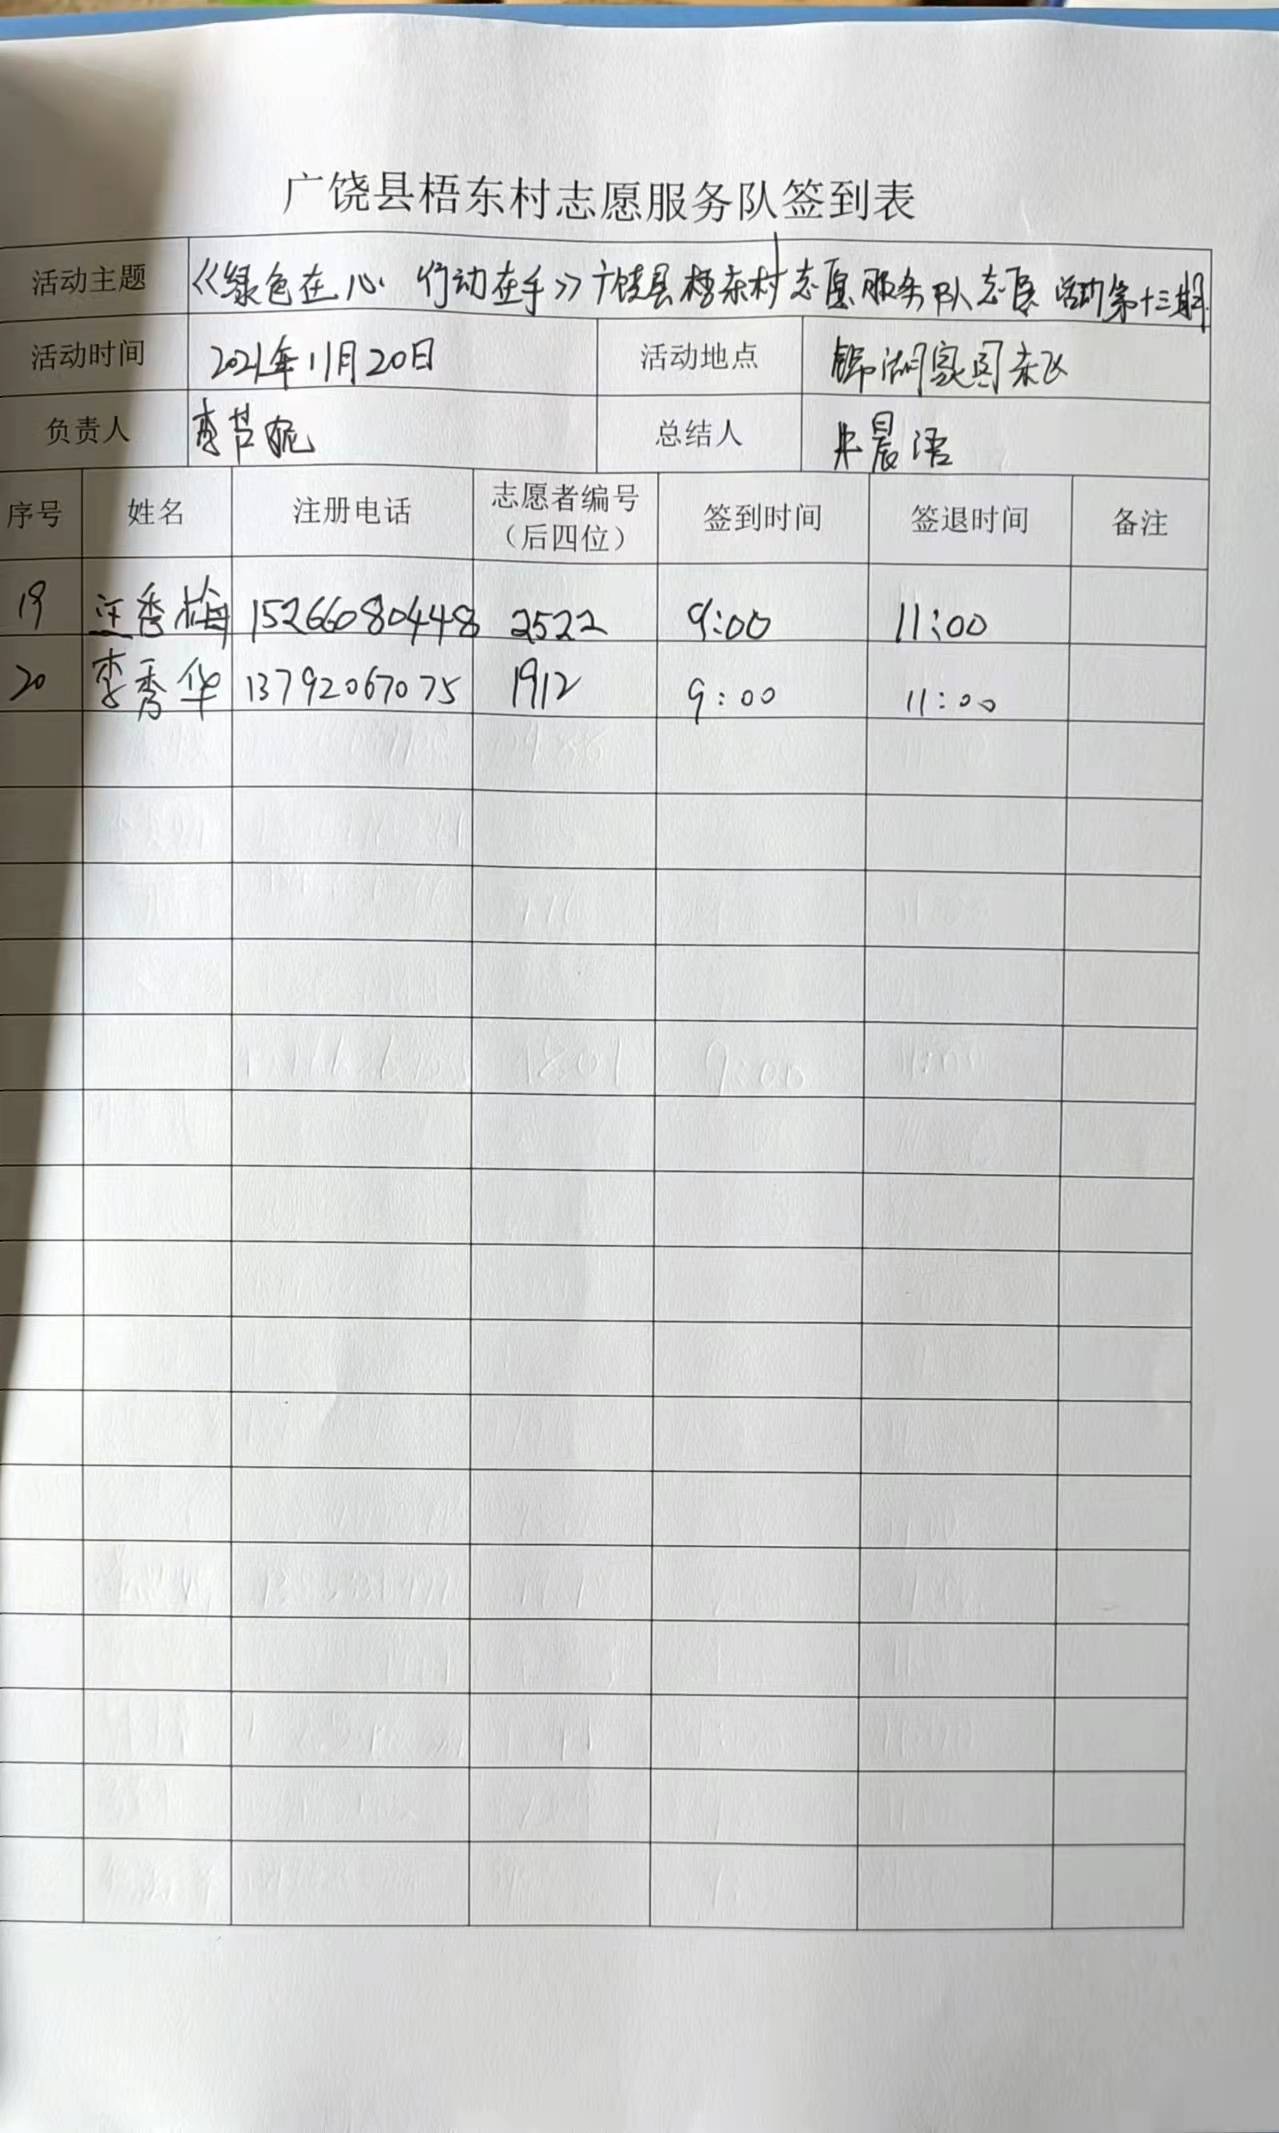 广饶县梧东村志愿服务队签到表
活动主题 《绿色在心 行动在手》广饶县梧东村志愿服务队志愿活动第十三期
活动时间 2021年11月20日 活动地点 锦湖家园东区
负责人 李 总结人 晨语
序号 姓名 注册电话 志愿者编号（后四位） 签到时间 签退时间 备注
19 汪秀梅 15266080448 2522 9:00 11:00
20 李秀华 13792067075 1912 9:00 11:00